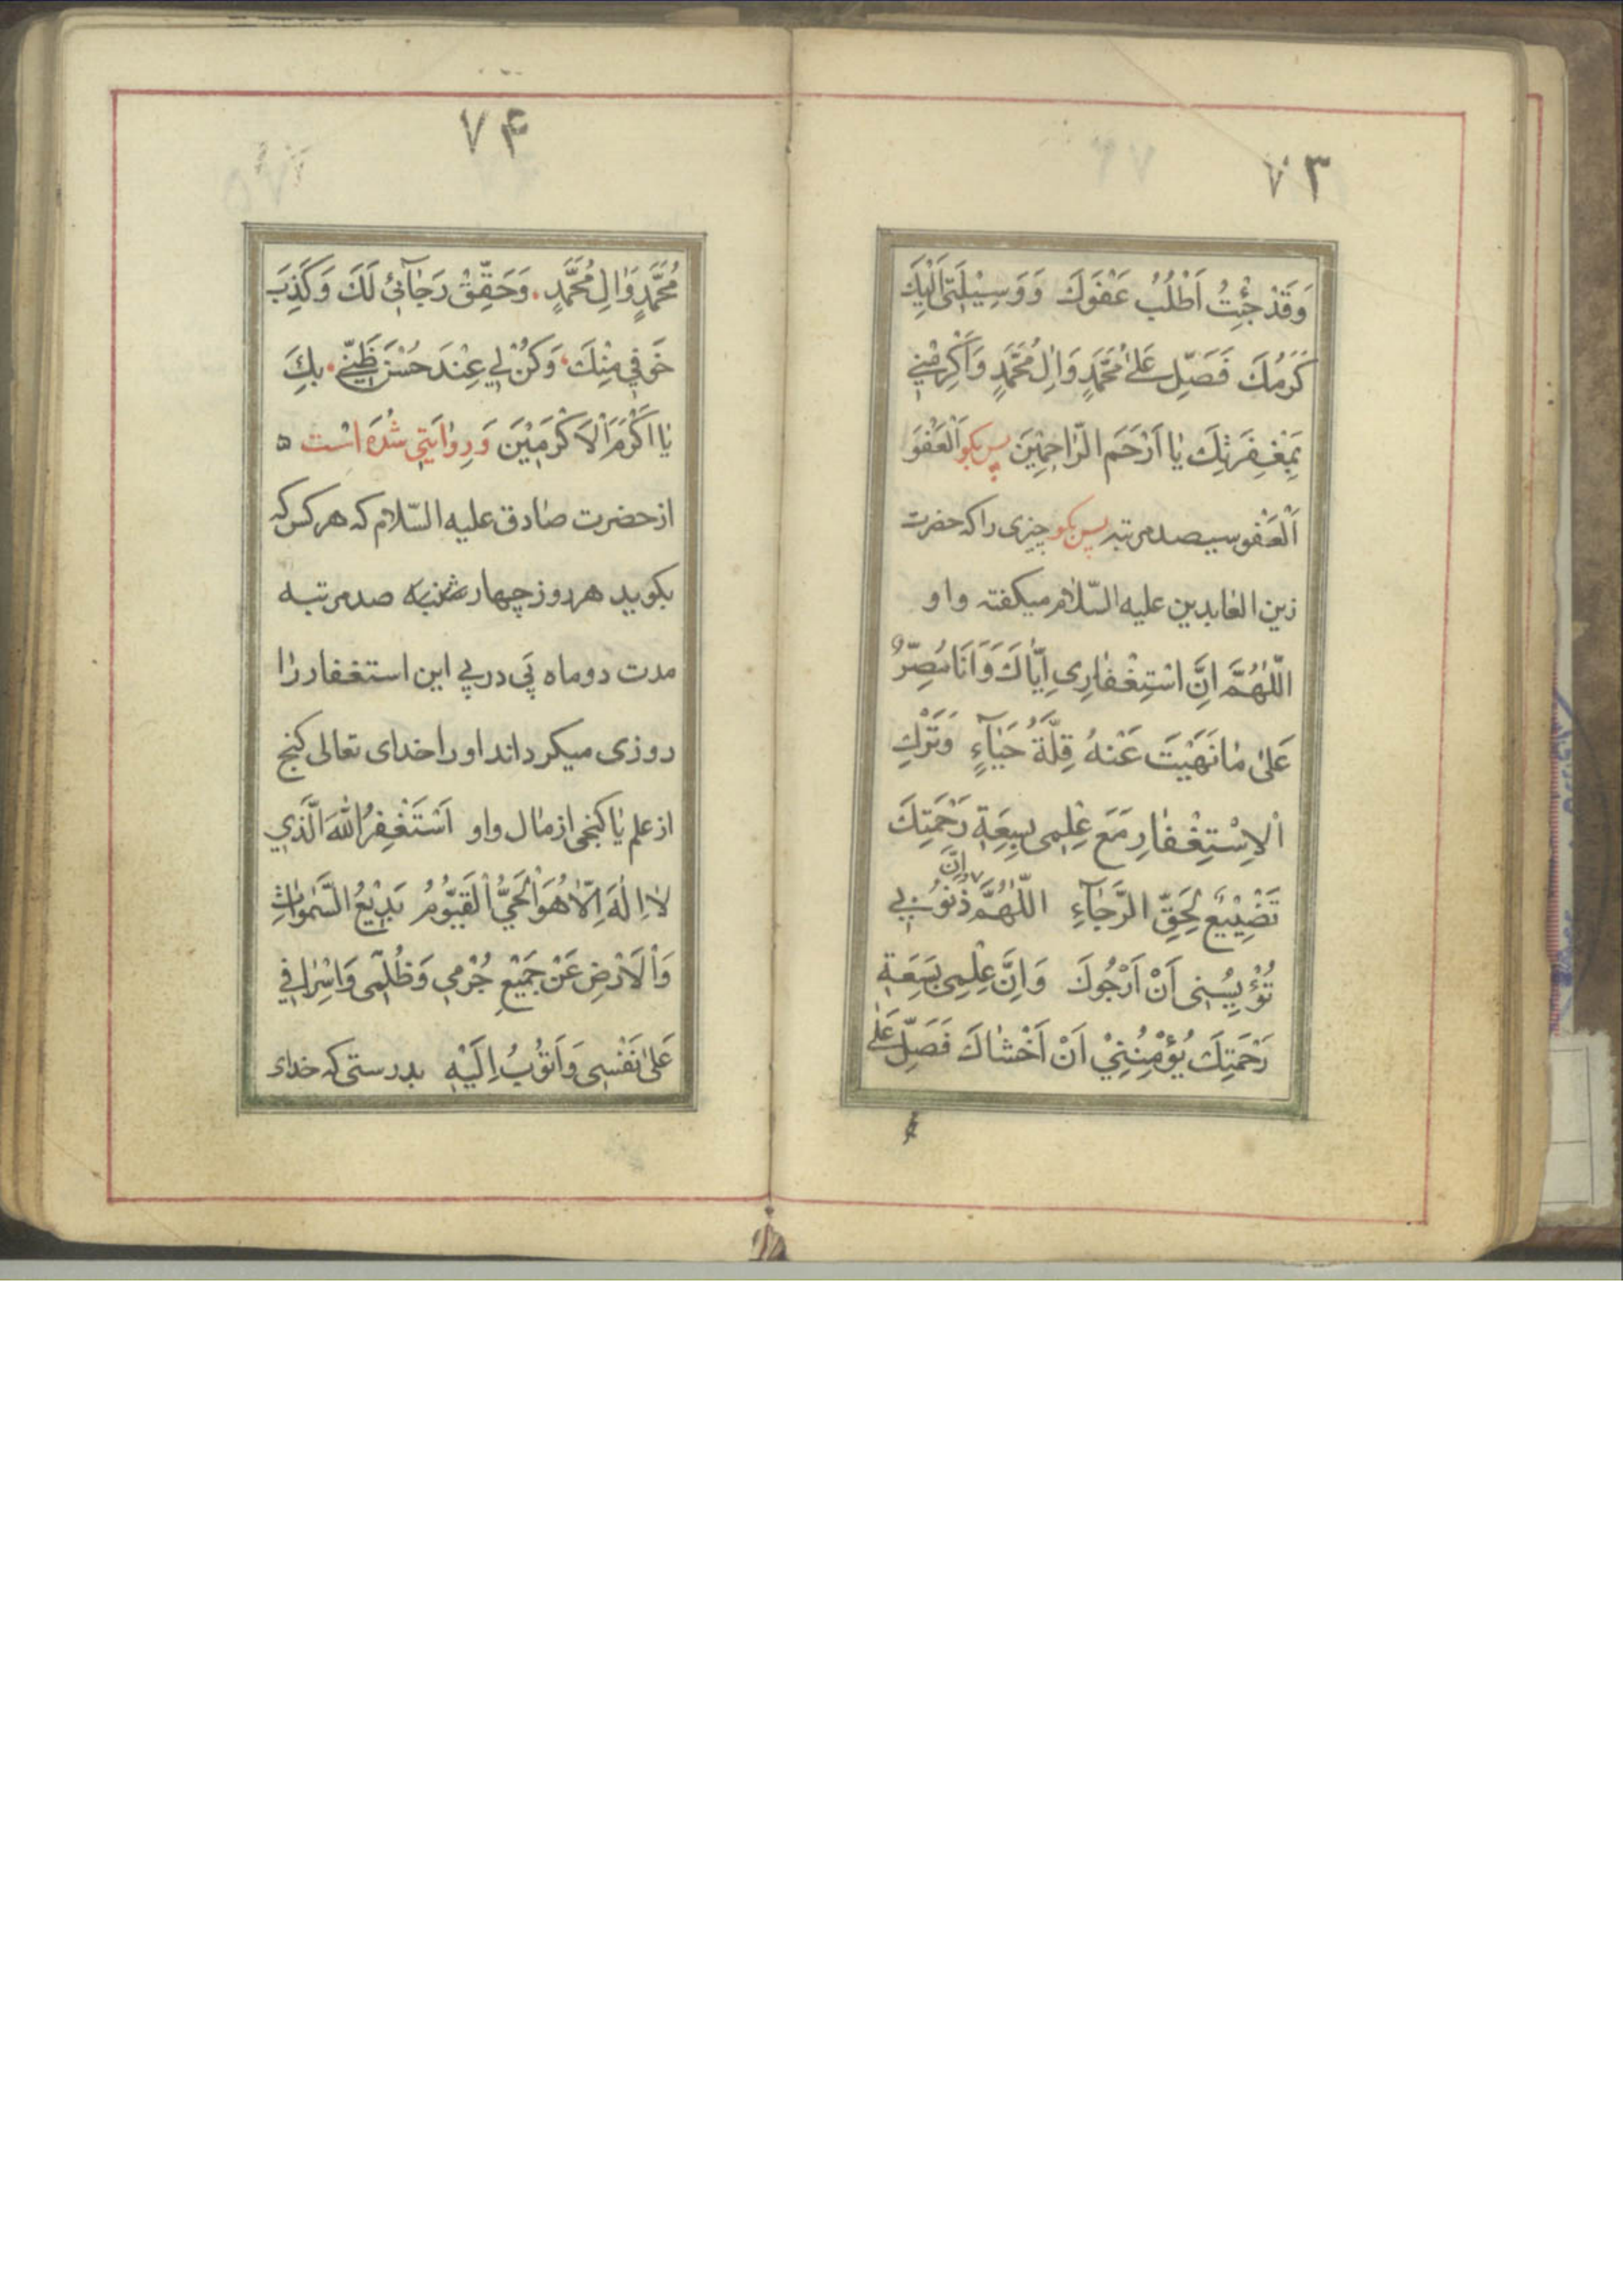 ۷۳
وَقَدْ جِئْتُ اَطْلُبُ عَفْوَكَ وَوَسِیْلَتیٖ اِلَیْكَ
كَرَمُكَ فَصَلِّ عَلیٰ مُحَمَّدٍ وَاٰلِ مُحَمَّدٍ وَاَكْرِمْنیٖ
بِمَغْفِرَتِكَ یٰا اَرْحَمَ الرّٰاحِمیٖنَ پس بكو اَلْعَفْوَ
اَلْعَفْو سیصد مرتبه پس بكو چیزی را كه حضرت
زین العٰابدین علیه السّلام میكفته و او
اَللّٰهُمَّ اِنَّ اسْتِغْفٰارِی اِیّٰاكَ وَاَنَا مُصِرٌّ
عَلیٰ مٰا نَهَیْتَ عَنْهُ قِلَّةُ حَیٰآءٍ وَتَرْكِ
اْلاِسْتِغْفٰارِ مَعَ عِلْمِی بِسِعَةِ رَحْمَتِكَ
تَضْیِیْعٌ لِحَقِّ الرَّجٰآءِ اَللّٰهُمَّ اِنَّ ذُنُوبیٖ
تُؤْیِسُنِی اَنْ اَرْجُوكَ وَاِنَّ عِلْمِی بِسَعَةِ
رَحْمَتِكَ یُؤْمِنُنِیْ اَنْ اَخْشٰاكَ فَصَلِّ عَلیٰ
۷۴
مُحَمَّدٍ وَاٰلِ مُحَمَّدٍ. وَحَقِّقْ رَجٰآئیٖ لَكَ وَكَذِّبْ
خَوْفیٖ مِنْكَ، وَكُنْ لیٖ عِنْدَ حُسْنِ ظَنّیٖ. بِكَ
یٰا اَكْرَمَ اْلاَكْرَمیٖنَ وَ رِوٰایَتیٖ شُدَه اسْت
از حضرت صٰادق علیه السّلام كه هر كس كه
بكوید هر روز چهار شنبه صد مرتبه
مدت دو ماه پَی در پیٖ این استغفار رٰا
روزی میكرداند او را خدای تعالی كنج
از علم یٰا كنجی از مٰال و او اَسْتَغْفِرُ اللّٰهَ الَّذیٖ
لاٰ اِلٰهَ اِلّاٰ هُوَ الْحَیُّ الْقَیُّوْمُ بَدیٖعُ السَّمٰوٰاتِ
وَاْلاَرْضِ عَنْ جَمیٖعِ جُرْمیٖ وَظُلْمِی وَاِسْرٰافیٖ
عَلیٰ نَفْسِی وَاَتُوْبُ اِلَیْهِ بدرستی كه خدای